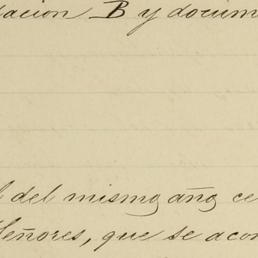 tacion B y docum
l del mismo año ce
Señores, que se acor